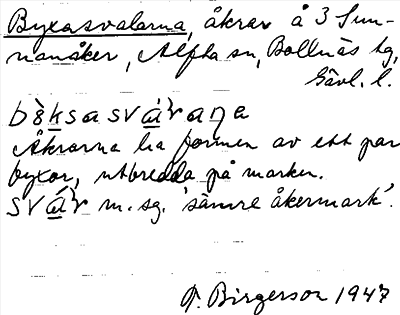 Byxasvalarna, åkrar å 3 Sun-
nanåker, Alfta sn, Bollnäs tg,
Gävl. l.
bʚ̀ksasváraɳa
Åkrarna ha formen av ett par
byxor, utbredda på marken.
svár m. sg. 'sämre åkermark'.
T. Birgerson 1947